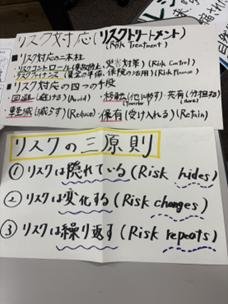 リスク対応(リスクトリートメント)
(Risk Treatment)
■リスク対応の二本柱
・リスクコントロール(事故防止・災害対策)(Risk Control)
・リスクファイナンス(資金の準備、保険の活用)(Risk Finance)
■リスク対応の四つの手段
・回避(避ける)(Avoid) ・移転(他に移す)・共有(分担する)
(Transfer)
・軽減(減らす)(Reduce) ・保有(受け入れる)(Retain)
リスクの三原則
① リスクは隠れている(Risk hides)
② リスクは変化する(Risk changes)
③ リスクは繰り返す(Risk repeats)